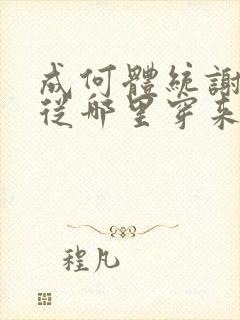 成何體統謝
從哪里穿来
程凡